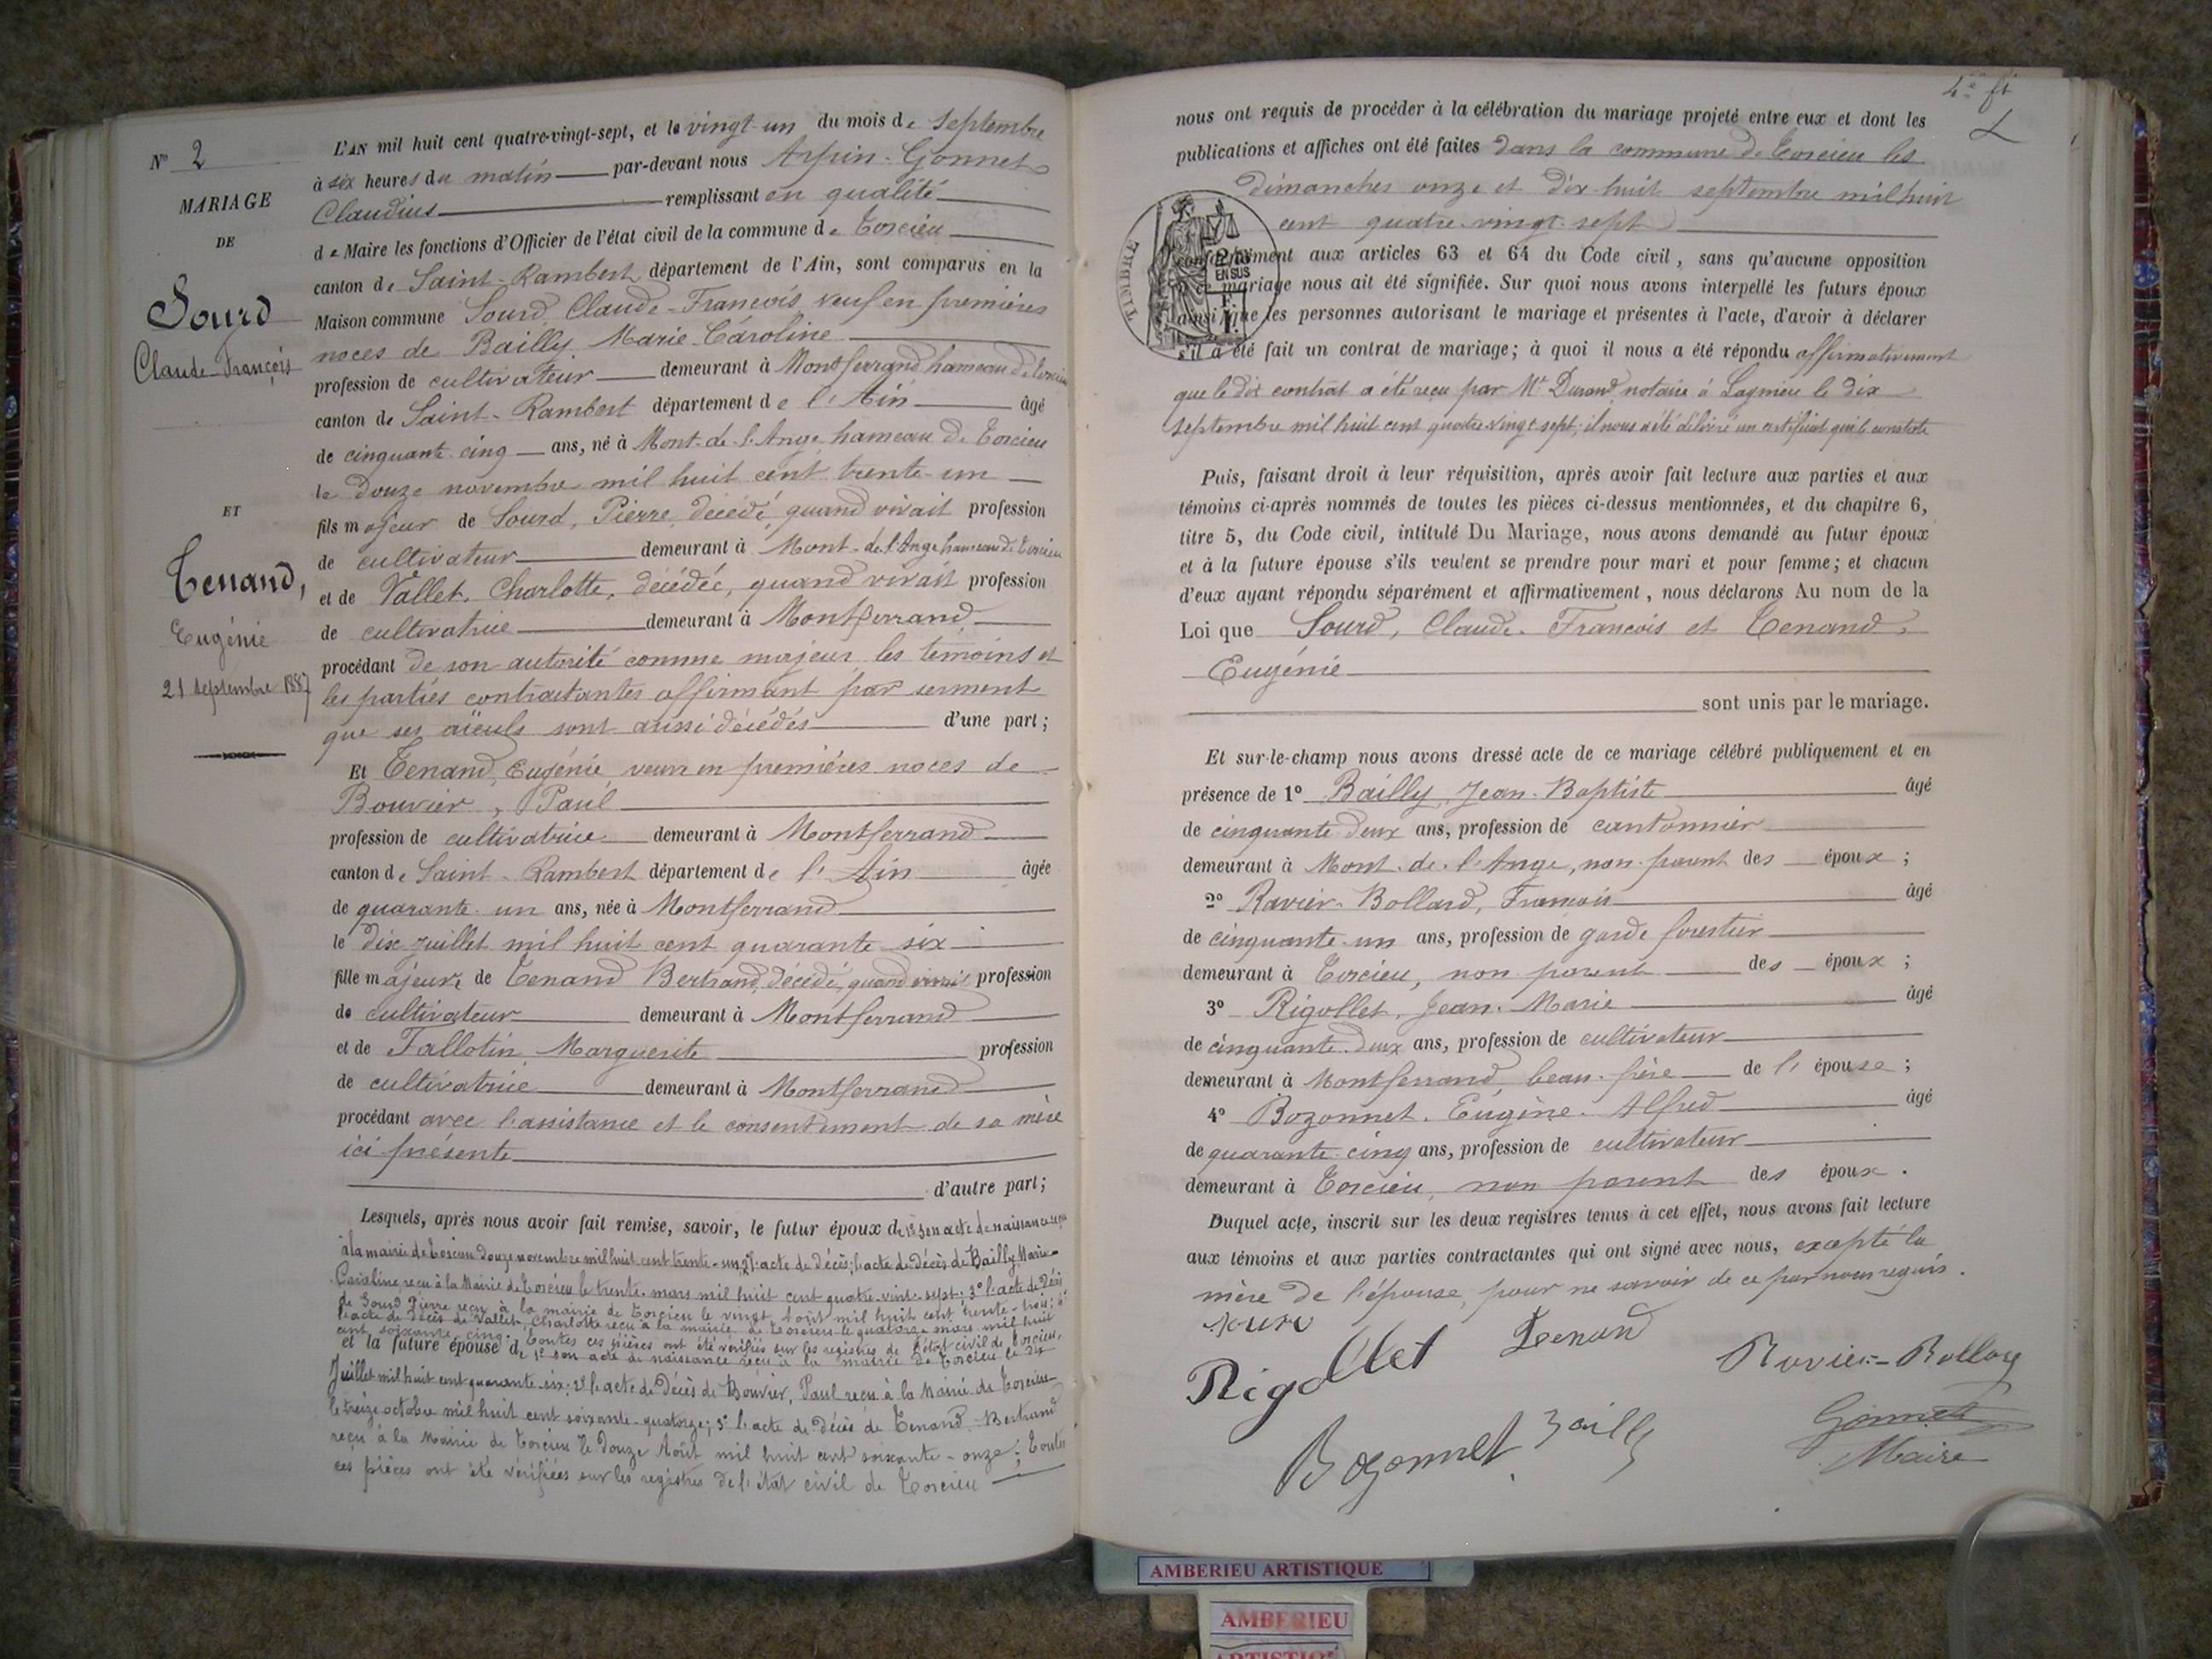 N° 2
MARIAGE
DE
Sourd
Claude-François
ET
Tenand,
Eugénie
21 septembre 1887
L'AN mil huit cent quatre-vingt-sept, et le vingt-un du mois de septembre
à six heures du matin par-devant nous Arpin-Gonnet
Claudius remplissant en qualité
de Maire les fonctions d'Officier de l'état civil de la commune de Torcieu
canton de Saint-Rambert département de l'Ain, sont comparus en la
Maison commune Sourd, Claude-François veuf en premières
noces de Bailly, Marie-Caroline
profession de cultivateur demeurant à Montferrand hameau de Torcieu
canton de Saint-Rambert département de l'Ain âgé
de cinquante-cinq ans, né à Mont-de-l'Ange hameau de Torcieu
le douze novembre mil huit cent trente-un
fils majeur de Sourd, Pierre, décédé, quand vivait profession
de cultivateur demeurant à Mont-de-l'Ange hameau de Torcieu
et de Vallet, Charlotte, décédée, quand vivait profession
de cultivatrice demeurant à Montferrand
procédant de son autorité comme majeur, les témoins et
les parties contractantes affirmant par serment
que ses aïeuls sont aussi décédés d'une part;
Et Tenand, Eugénie, veuve en premières noces de
Bouvier, Paul
profession de cultivatrice demeurant à Montferrand
canton de Saint-Rambert département de l'Ain âgée
de quarante-un ans, née à Montferrand
le dix juillet mil huit cent quarante-six
fille majeure de Tenand Bertrand, décédé, quand vivait profession
de cultivateur demeurant à Montferrand
et de Fallotin, Marguerite profession
de cultivatrice demeurant à Montferrand
procédant avec l'assistance et le consentement de sa mère
ici présente
d'autre part;
Lesquels, après nous avoir fait remise, savoir, le futur époux de 1° son acte de naissance reçu
à la mairie de Torcieu douze novembre mil huit cent trente-un; 2° l'acte de décès; l'acte de décès de Bailly, Marie-
Caroline, reçu à la Mairie de Torcieu le trente mars mil huit cent quatre-vingt-sept; 3° l'acte de décès
de Sourd Pierre reçu à la mairie de Torcieu le vingt Août mil huit cent trente-trois; 4°
l'acte de décès de Vallet, Charlotte reçu à la mairie de Torcieu le quatorze mars mil huit
cent soixante-cinq. Toutes ces pièces ont été vérifiées sur les registres de l'état civil de Torcieu,
et la future épouse de 1° son acte de naissance reçu à la mairie de Torcieu le dix
Juillet mil huit cent quarante-six; 2° l'acte de décès de Bouvier, Paul reçu à la Mairie de Torcieu
le treize octobre mil huit cent soixante-quatorze; 3° l'acte de décès de Tenand Bertrand
reçu à la Mairie de Torcieu le douze Août mil huit cent soixante-onze; Toutes
ces pièces ont été vérifiées sur les registres de l'état civil de Torcieu
nous ont requis de procéder à la célébration du mariage projeté entre eux et dont les
publications et affiches ont été faites dans la commune de Torcieu les
dimanches onze et dix-huit septembre mil huit
cent quatre-vingt-sept
TIMBRE
EN SUS
conformément aux articles 63 et 64 du Code civil, sans qu'aucune opposition
à ce mariage nous ait été signifiée. Sur quoi nous avons interpellé les futurs époux
ainsi que les personnes autorisant le mariage et présentes à l'acte, d'avoir à déclarer
s'il a été fait un contrat de mariage; à quoi il nous a été répondu affirmativement
que le dit contrat a été reçu par Mt Durand, notaire à Lagnieu le dix
septembre mil huit cent quatre-vingt-sept; il nous a été délivré un certificat qui le constate
Puis, faisant droit à leur réquisition, après avoir fait lecture aux parties et aux
témoins ci-après nommés de toutes les pièces ci-dessus mentionnées, et du chapitre 6,
titre 5, du Code civil, intitulé Du Mariage, nous avons demandé au futur époux
et à la future épouse s'ils veulent se prendre pour mari et pour femme; et chacun
d'eux ayant répondu séparément et affirmativement, nous déclarons Au nom de la
Loi que Sourd, Claude-François et Tenand,
Eugénie
sont unis par le mariage.
Et sur-le-champ nous avons dressé acte de ce mariage célébré publiquement et en
présence de 1° Bailly, Jean-Baptiste âgé
de cinquante-deux ans, profession de cantonnier
demeurant à Mont-de-l'Ange, non parent des époux;
2° Ravier-Bollard, François âgé
de cinquante-un ans, profession de garde forestier
demeurant à Torcieu, non parent des époux;
3° Rigollet, Jean-Marie âgé
de cinquante-deux ans, profession de cultivateur
demeurant à Montferrand, beau-frère de l'épouse;
4° Bozonnet, Eugène-Alfred âgé
de quarante-cinq ans, profession de cultivateur
demeurant à Torcieu, non parent des époux.
Duquel acte, inscrit sur les deux registres tenus à cet effet, nous avons fait lecture
aux témoins et aux parties contractantes qui ont signé avec nous, excepté la
mère de l'épouse, pour ne savoir de ce par nous requis.
Rigollet Tenand Ravier-Bollard
Bozonnet Bailly Gonnet
Maire
AMBERIEU ARTISTIQUE
AMBERIEU
ARTISTIQUE